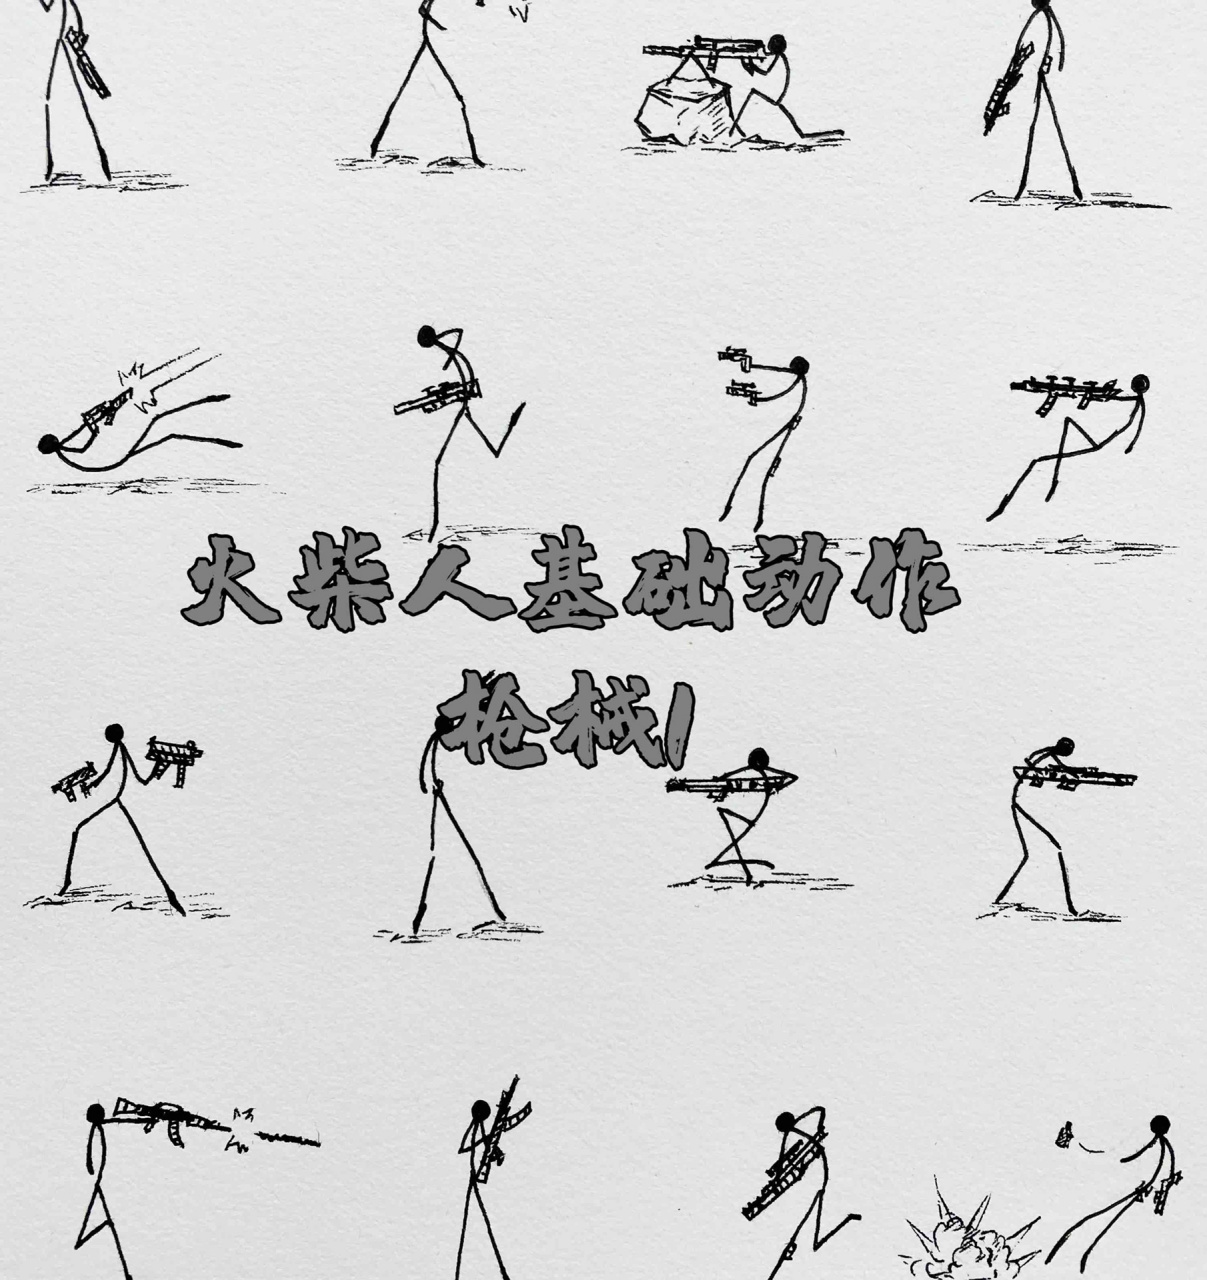 火柴人基础动作
枪械1